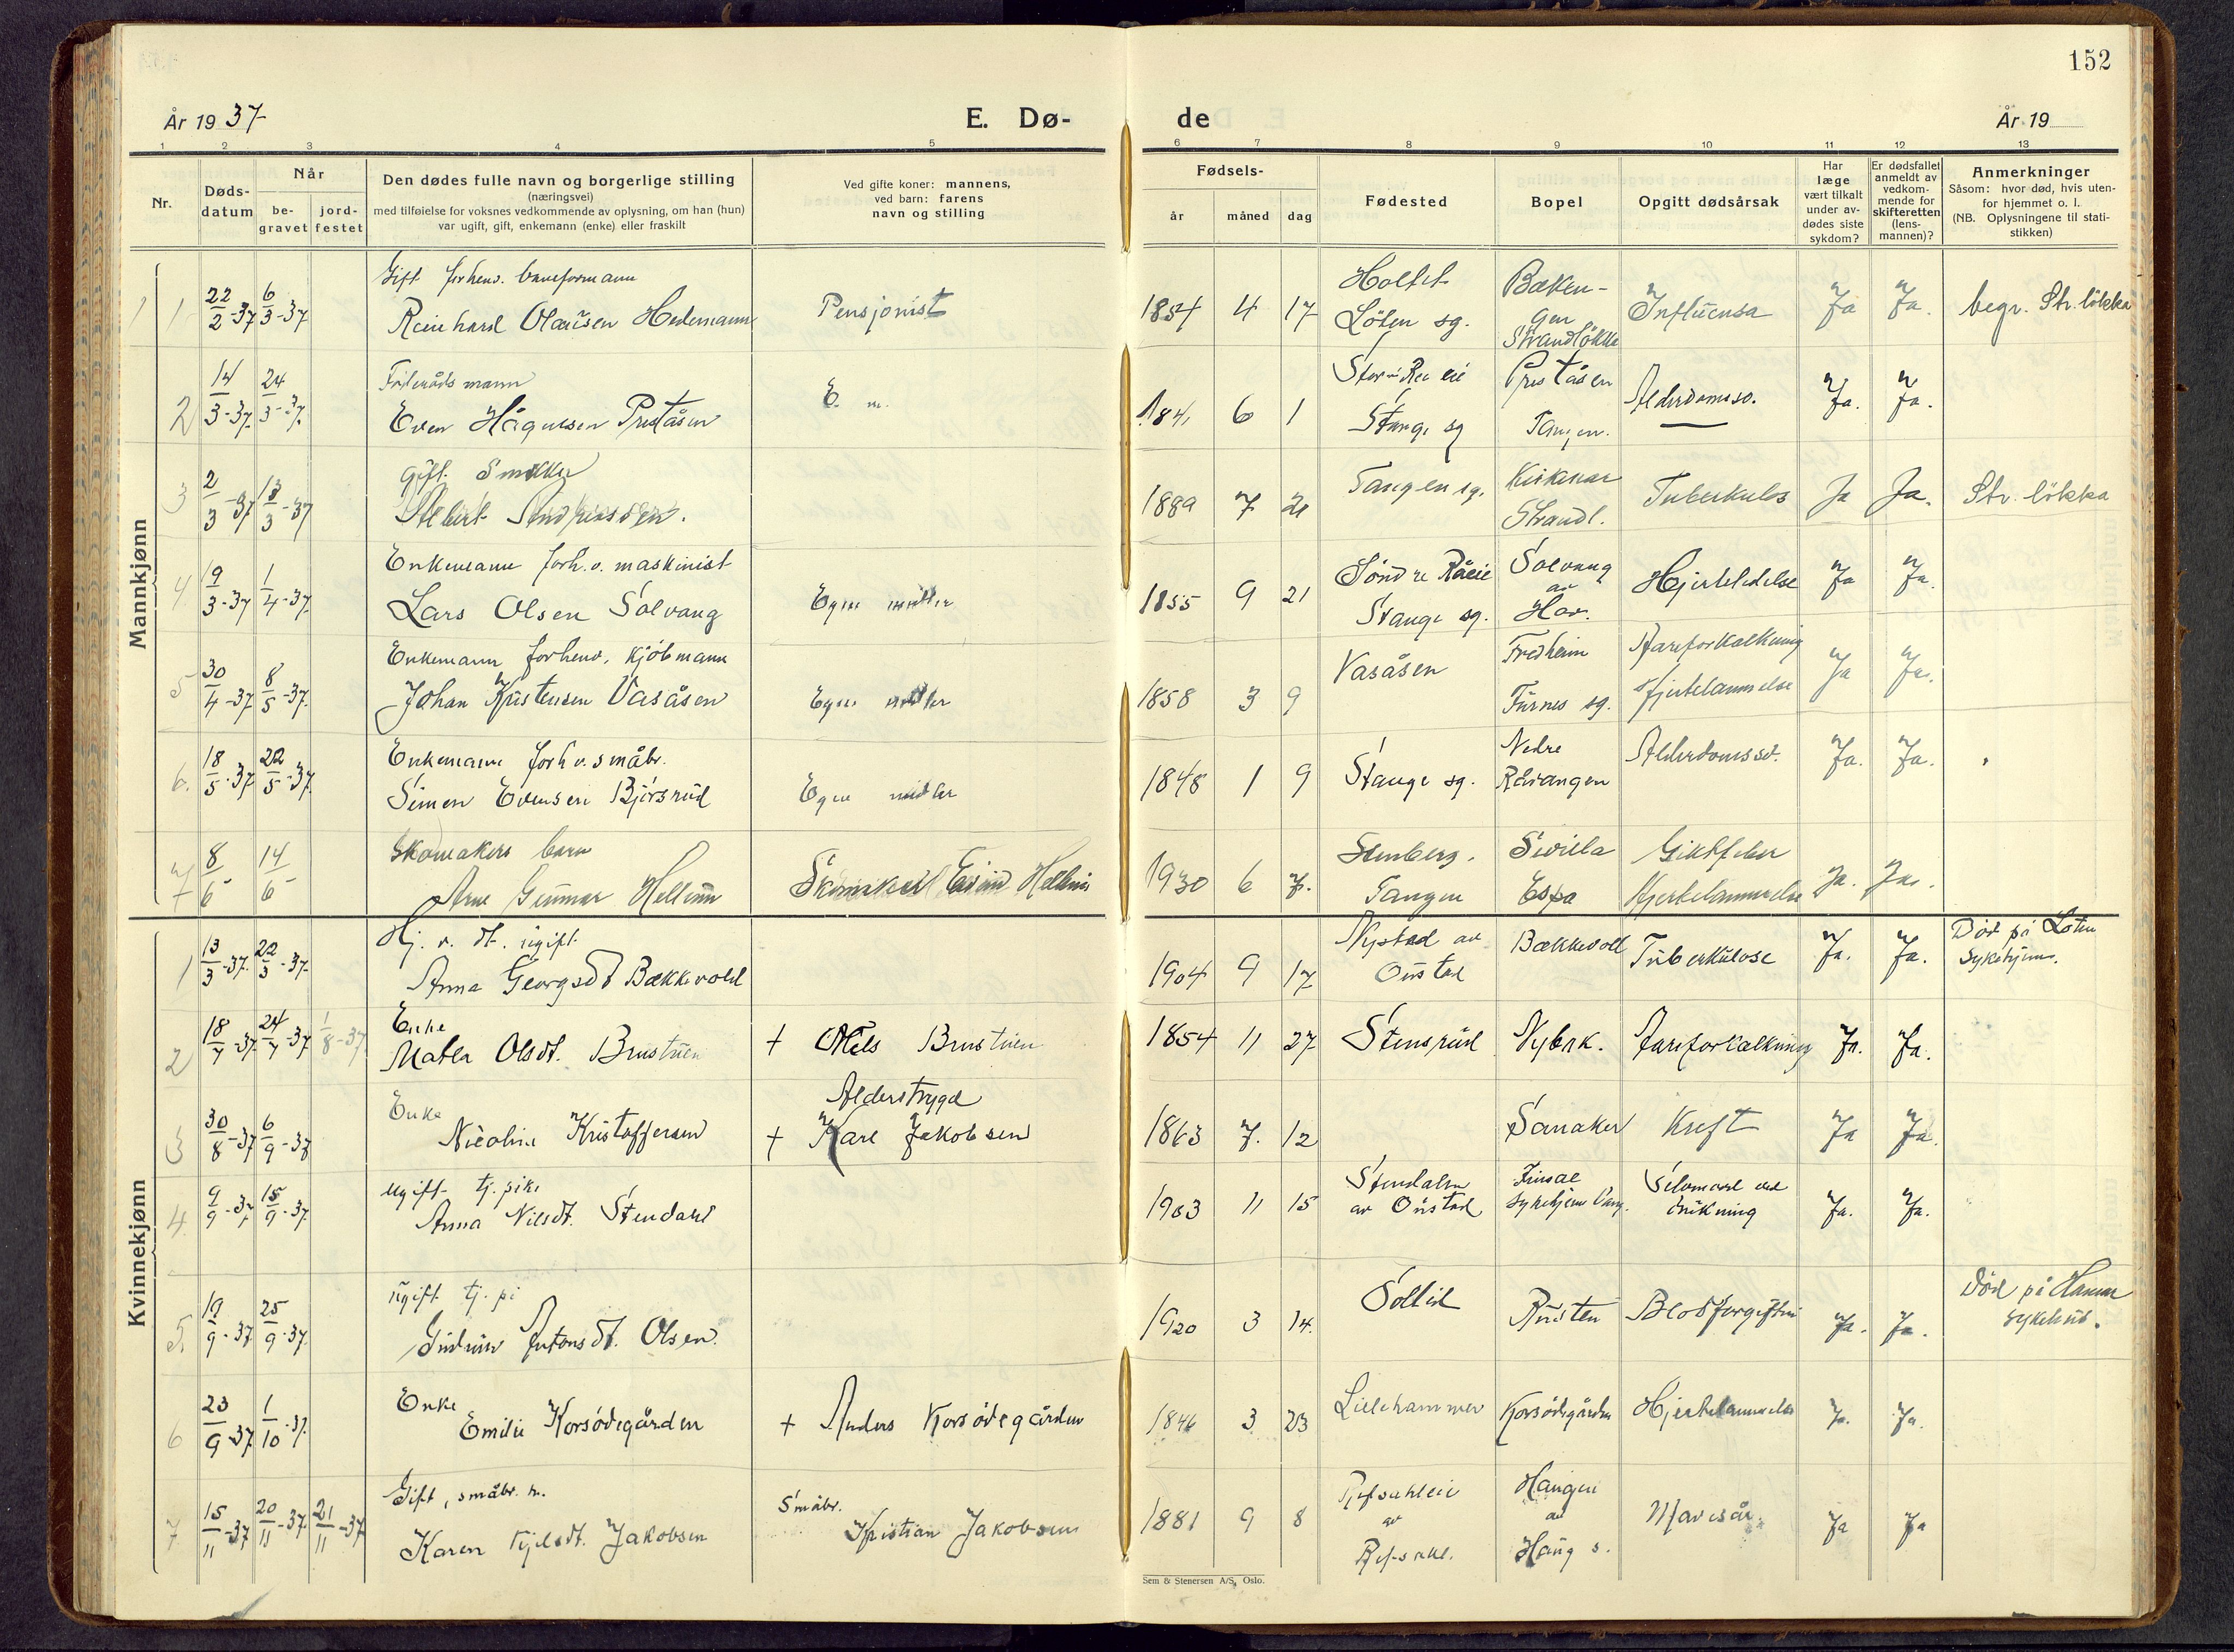 152
År 19 37
E. Dø-
de
År 19
1 2 3 4 5 6 7 8 9 10 11 12 13
Nr.
Døds-
datum
Når
be-
gravet
jord-
festet
Den dødes fulle navn og borgerlige stilling
(næringsvei)
med tilføielse for voksnes vedkommende av oplysning, om han (hun)
var ugift, gift, enkemann (enke) eller fraskilt
Ved gifte koner: mannens,
ved barn: farens
navn og stilling
Fødsels-
år måned dag
Fødested
Bopel
Opgitt dødsårsak
Har
læge
vært tilkalt
under av-
dødes siste
sykdom?
Er dødsfallet
anmeldt av
vedkom-
mende for
skifteretten
(lens-
mannen)?
Anmerkninger
Såsom: hvor død, hvis uten-
for hjemmet o. l.
(NB. Oplysningene til stati-
stikken)
Mannkjønn
1 22/2-37 6/3-37 Gift forhenv. baneformann
Reinhard Olausen Hedemann Pensjonist 1854 4 17 Holtet Löten sg. Bæken-gen Strandlökka Influensa Ja Ja. begr. Str. lökka
2 14/3-37 24/3-37.
Even Hågensen Preståsen E. m. 1841 6 1 Stange sg Preståsen Tangen. Alderdomssv. Ja. Ja.
3 2/3-37 13/3-37 gift. Snekker
Albert Andreassen. 1889 7 Tangen sg. Strandl. Tuberkulos Ja Ja. Str. lökka
4 19/3-37 1/4-37. Enkemann forh.v. maskinist
Lars Olsen Solvang Egne midler 1855 9 21 Söndre Råeie Stange sg. Solvang av Hov. Hjertelidelse Ja Ja.
5 30/4-37 8/5-37. Enkemann forhenv. kjöbmann
Johan Kristensen Vasåsen Egne midler 1858 3 9 Vasåsen Fredheim Furnes sg. Åreforkalkning Hjertelammelse Ja Ja.
6. 18/5-37 22/5-37 Enkemann forhv. småbr.
Simen Evensen Björsrud Egne midler 1848 1 9 Stange sg. Nedre Råvangen Alderdomssv. Ja. Ja.
7 8/6 14/6 Skomakers barn
Arne Gunnar Hellum 1930 6 7. Stenberg. Tangen Espa Giktfeber Hjertelammelse Ja. Ja.
Kvinnekjønn
1 13/3-37. 22/3-37. Hj. v. dt. ugift.
Anna Georgsdt Bækkevold 1904 9 17 Nystad av Onstad Bækkevoll Tuberkulose Ja. Ja. Död på Löten Sykehjem.
2 18/7-37. 24/7-37 1/8-37 Enke
Mathea Olsdt. Brustuen + Brustuen 1854 11 27 Stensrud Nybrk. Åreforkalkning Ja. Ja.
3 30/8-37 6/9-37 Enke
Nicoline Kristoffersen Alderstrygd + Karl Jakobsen 1863 7. 12 Sanaker Kreft Ja Ja.
4. 9/9-37 15/9-37. ugift tj. pike
Anna Nilsdt. Stendahl 1903 11 15 Stendalen av Onstad sykehjem Vang. Selvmord ved drukning Ja. Ja.
5. 19/9-37 25/9-37. ugift tj. pi
Gudrun Antonsdt. Olsen. 1920 3 14. Sollid Rusten Blodforgiftni Ja. Ja. Död på Hamar sykehus.
6 23/9-37 1/10-37. Enke
Emilie Korsödegården + Anders Korsödegården 1846 3 23 Lillehammer Korsödegården Hjertelammelse Ja. Ja.
7 15/11-37 20/11-37. 21/11-37 Gift, småbr. h.
Karen Kjelsdt. Jakobsen Småbr. Kristian Jakobsen 1881 9 8 Refsahleie av Refsahl. Haugen av Haug s. Mavesår. Ja Ja
Sem & Stenersen A/S, Oslo.